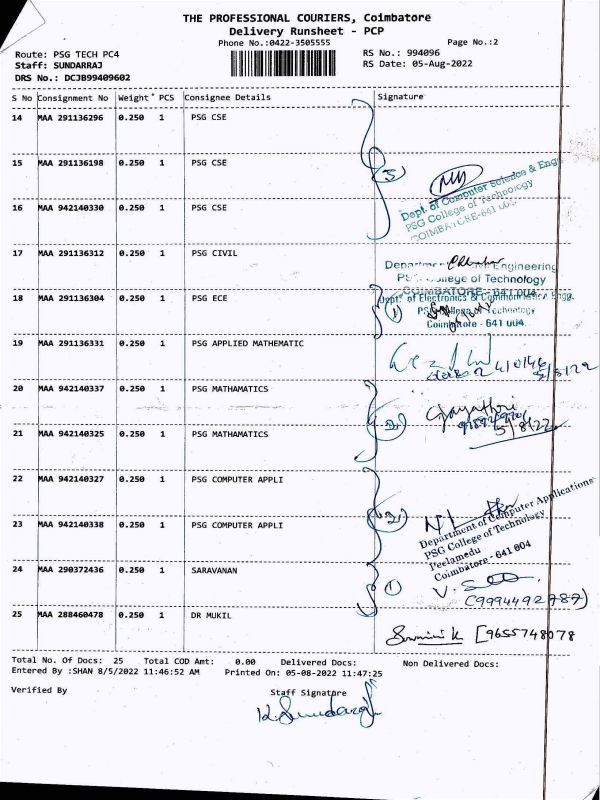 THE PROFESSIONAL COURIERS, Coimbatore
Delivery Runsheet - PCP
Phone No.:0422-3505555 Page No.:2
Route: PSG TECH PC4 RS No.: 994096
Staff: SUNDARRAJ RS Date: 05-Aug-2022
DRS No.: DCJB99409602
S No Consignment No Weight PCS Consignee Details Signature
14 MAA 291136296 0.250 1 PSG CSE
15 MAA 291136198 0.250 1 PSG CSE
3
Dept. of Computer Science & Engg
PSG College of Technology
COIMBATORE-641 004
16 MAA 942140330 0.250 1 PSG CSE
17 MAA 291136312 0.250 1 PSG CIVIL
Engineering
PSG College of Technology
COIMBATORE - 641 004
18 MAA 291136304 0.250 1 PSG ECE
1
Dept. of Electronics & Communication Engg.
PSG College of Technology
Coimbatore - 641 004
19 MAA 291136331 0.250 1 PSG APPLIED MATHEMATIC
5/8/22
20 MAA 942140337 0.250 1 PSG MATHAMATICS
2
Gayathri
5/8/22
21 MAA 942140325 0.250 1 PSG MATHAMATICS
22 MAA 942140327 0.250 1 PSG COMPUTER APPLI
2
23 MAA 942140338 0.250 1 PSG COMPUTER APPLI
Department of Computer Applications
PSG College of Technology
Peelamedu
Coimbatore - 641 004
24 MAA 290372436 0.250 1 SARAVANAN
1
(9994492787)
25 MAA 288460478 0.250 1 DR MUKIL
[9655748078
Total No. Of Docs: 25 Total COD Amt: 0.00 Delivered Docs: Non Delivered Docs:
Entered By :SHAN 8/5/2022 11:46:52 AM Printed On: 05-08-2022 11:47:25
Verified By Staff Signature
K. Sundaraj